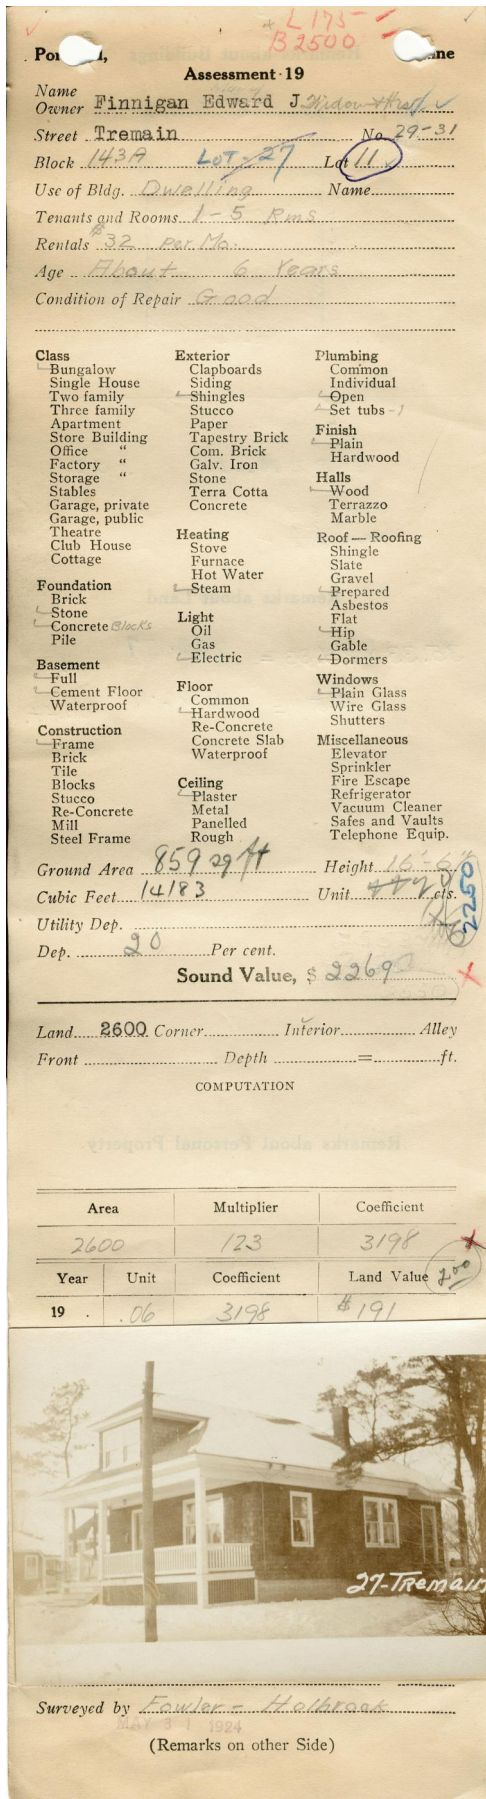 L 175
B 2500
Assessment 19
Name
Owner Finnigan Edward J Widow + Hrs
Street Tremain No. 29-31
Block 143A Lot 27 Lot 11
Use of Bldg. Dwelling Name
Tenants and Rooms 1-5 Rms
Rentals $32 Per Mo.
Age About 6 Years
Condition of Repair Good
Class
Bungalow
Single House
Two family
Three family
Apartment
Store Building
Office "
Factory "
Storage "
Stables
Garage, private
Garage, public
Theatre
Club House
Cottage
Foundation
Brick
Stone
Concrete Blocks
Pile
Basement
Full
Cement Floor
Waterproof
Construction
Frame
Brick
Tile
Blocks
Stucco
Re-Concrete
Mill
Steel Frame
Exterior
Clapboards
Siding
Shingles
Stucco
Paper
Tapestry Brick
Com. Brick
Galv. Iron
Stone
Terra Cotta
Concrete
Heating
Stove
Furnace
Hot Water
Steam
Light
Oil
Gas
Electric
Floor
Common
Hardwood
Re-Concrete
Concrete Slab
Waterproof
Ceiling
Plaster
Metal
Panelled
Rough
Plumbing
Common
Individual
Open
Set tubs - 1
Finish
Plain
Hardwood
Halls
Wood
Terrazzo
Marble
Roof — Roofing
Shingle
Slate
Gravel
Prepared
Asbestos
Flat
Hip
Gable
Dormers
Windows
Plain Glass
Wire Glass
Shutters
Miscellaneous
Elevator
Sprinkler
Fire Escape
Refrigerator
Vacuum Cleaner
Safes and Vaults
Telephone Equip.
Ground Area 859 sq ft Height 16'-6"
Cubic Feet 14183 Unit cts.
2250
Utility Dep.
Dep. 20 Per cent.
Sound Value, $ 2269
Land 2600 Corner Interior Alley
Front Depth = ft.
COMPUTATION
Area Multiplier Coefficient
2600 123 3198
Year Unit Coefficient Land Value 200
19 . .06 3198 $191
27-Tremain
Surveyed by Fowler - Holbrook
MAY 31 1924
(Remarks on other Side)